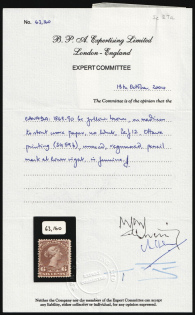 No. 63,160
B. P. A. Expertising Limited
London - England
EXPERT COMMITTEE
18th October, 2004
The Committee is of the opinion that the
CANADA: 1868-90 6c yellow brown, on medium
to stout wove paper, no wmk, perf 12, Ottawa
printing (SG59b), unused, regummed, pencil
mark at lower right, is genuine.
63,160
Neither the Committee nor the members of the Expert Committee can accept
any liability, either collective or individual, for any opinion expressed.